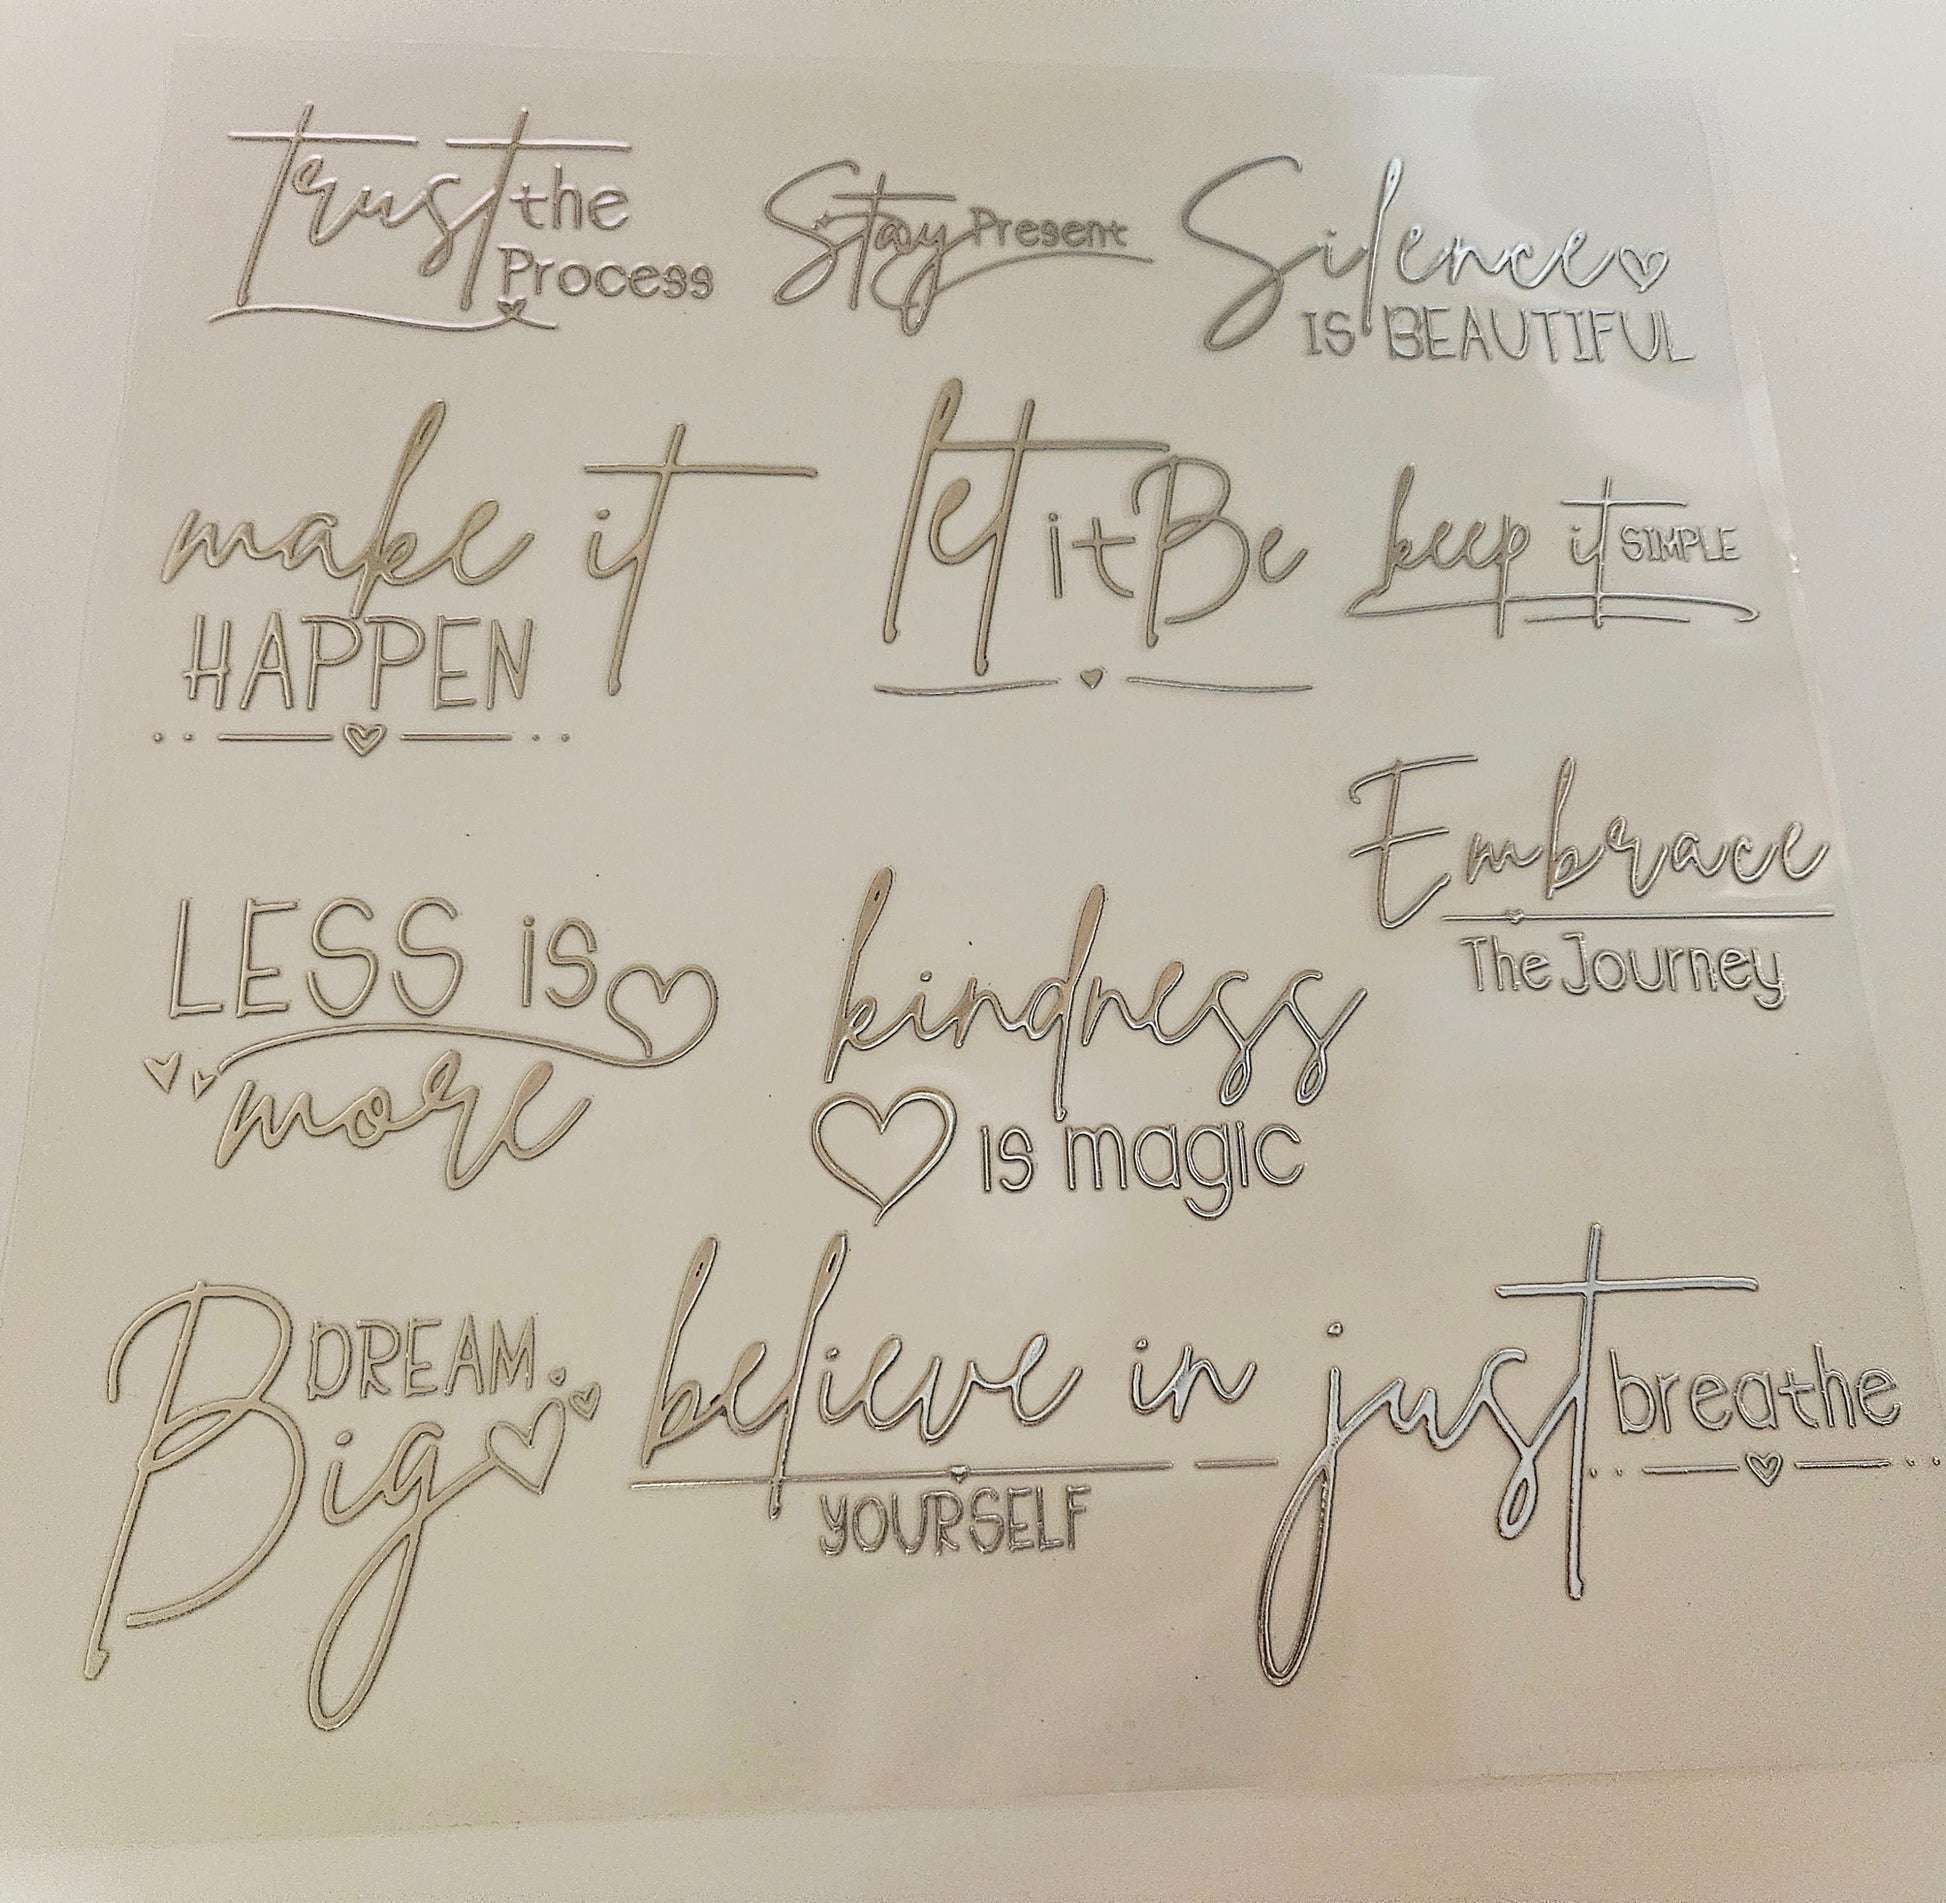 trust the
Process
Stay Present
Silence
IS BEAUTIFUL
make it
HAPPEN
let it Be
keep it SIMPLE
Embrace
The Journey
LESS is
more
kindness
is magic
DREAM
Big
believe in
YOURSELF
just breathe